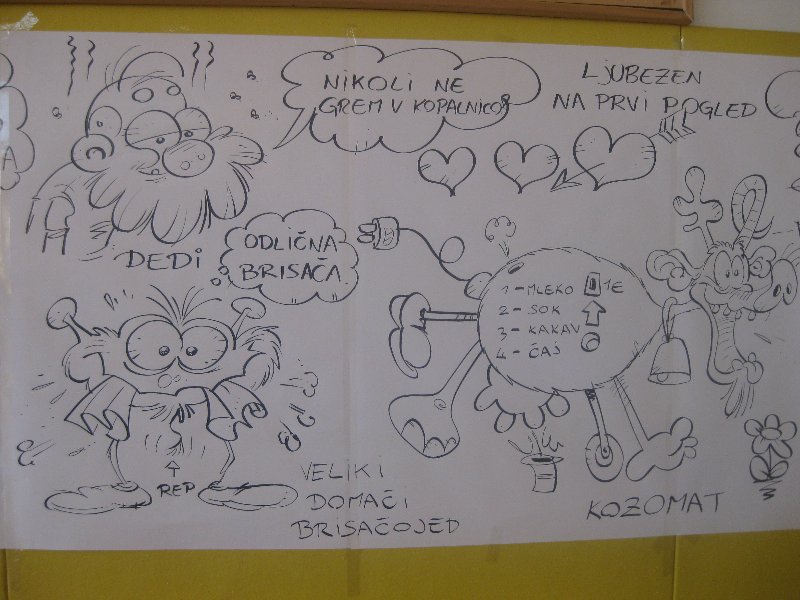 A
NIKOLI NE
GREM V KOPALNICO!
LJUBEZEN
NA PRVI POGLED
DEDI
ODLIČNA
BRISAČA
1 - MLEKO 1€
2 - SOK
3 - KAKAV
4 - ČAJ
REP
VELIKI
DOMAČI
BRISAČOJED
KOZOMAT